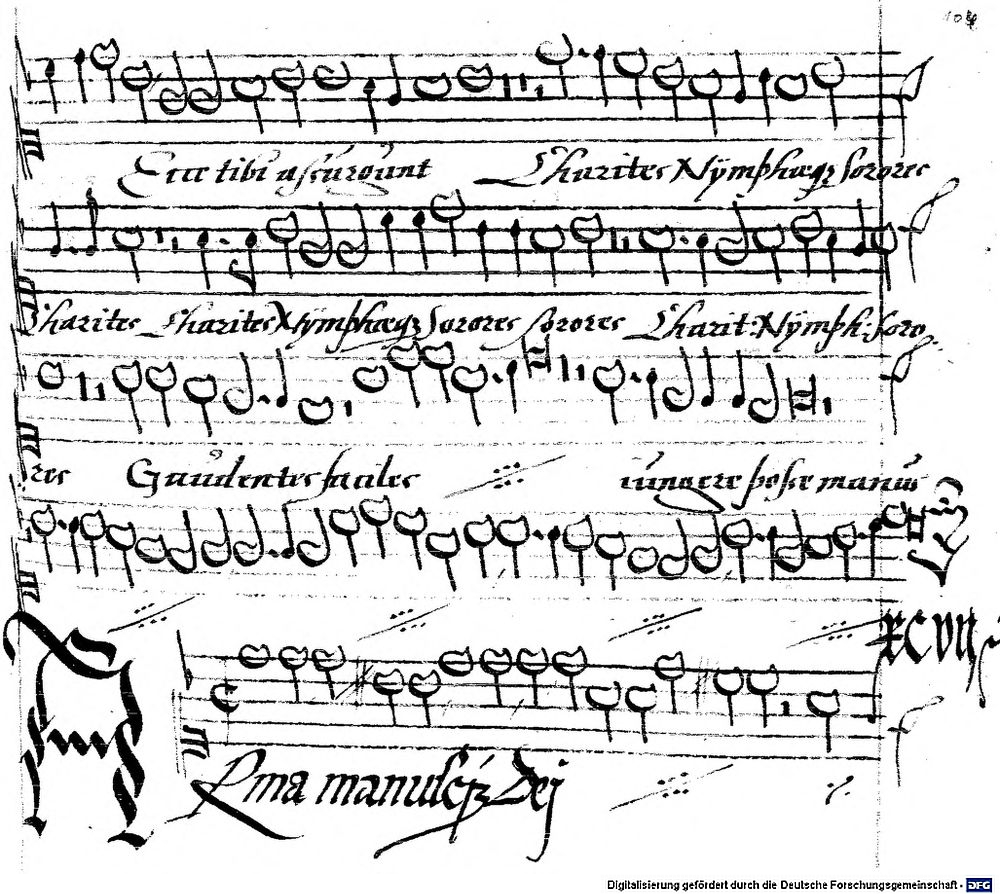 104
Ecce tibi assurgunt Charites Nÿmphæqꝫ sorores
Charites Charites Nÿmphæqꝫ sorores sorores Charit: Nÿmph: soro
res Gaudentes faciles iungere posse manus
XCVII
Arma manusqꝫ Dej
Digitalisierung gefördert durch die Deutsche Forschungsgemeinschaft - DFG